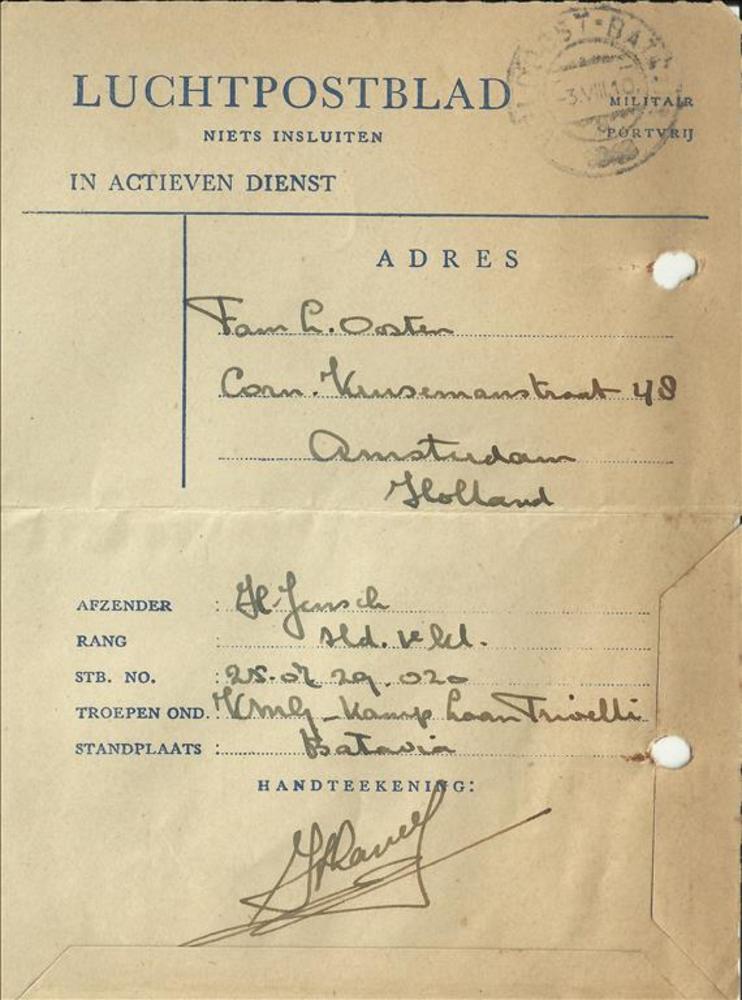 LUCHTPOSTBLAD
NIETS INSLUITEN
MILITAIR
PORTVRIJ
IN ACTIEVEN DIENST
ADRES
Fam L. Oosten
Corn. Krusemanstraat 48
Amsterdam
Holland
AFZENDER : H. Jensch
RANG : sld. 1e kl.
STB. NO. : 25.07.29.020
TROEPEN OND. : Kamp Laan Trivelli
STANDPLAATS : Batavia
HANDTEEKENING: